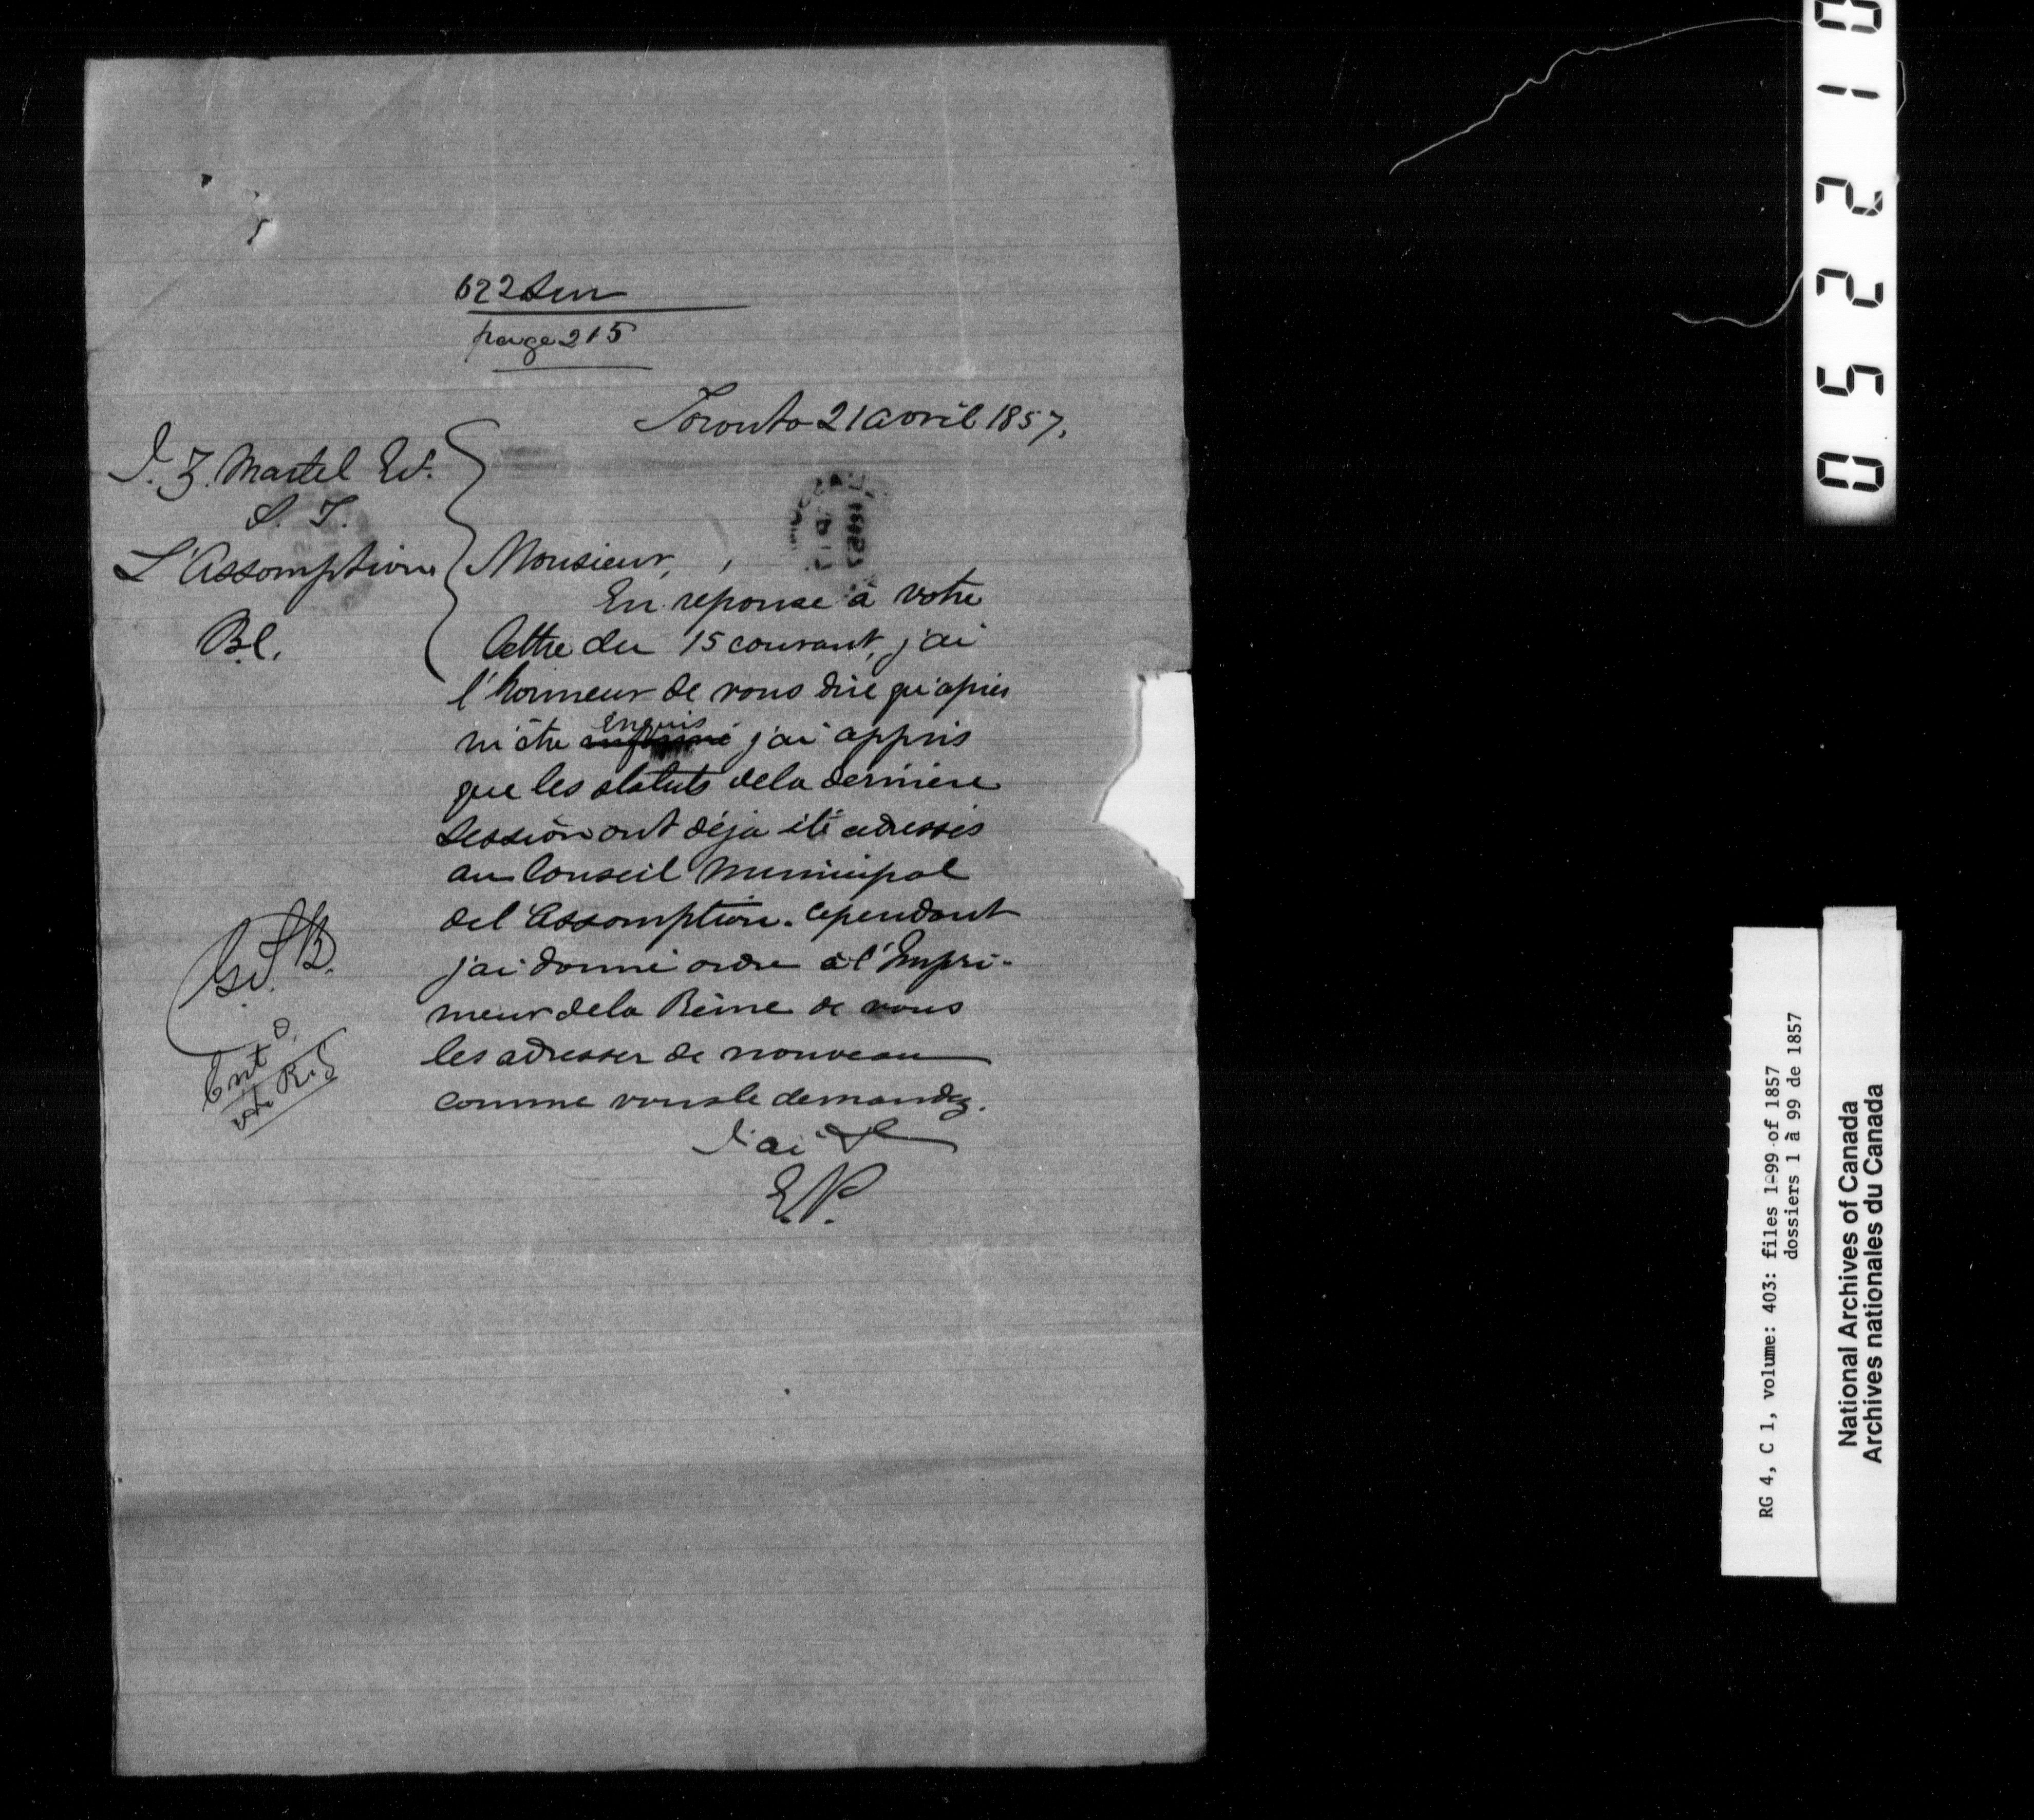 622
page 215
Toronto 21 avril 1857,
J. Z. Martel
S. T.
L'Assomption
B.C.
Monsieur,
En reponse à votre
lettre du 15 courant, j'ai
l'honneur de vous dire qu'après
m'être enquis j'ai appris
que les statuts de la dernière
session ont déja été adressés
au Conseil Municipal
de l'Assomption. Cependant
j'ai donné ordre à l'Impri-
meur de la Reine de vous
les adresser de nouveau
comme vous le demandez.
J'ai &
E.P.
Ent d.
RG 4, C 1, volume: 403: files 1-99 of 1857
dossiers 1 à 99 de 1857
National Archives of Canada
Archives nationales du Canada